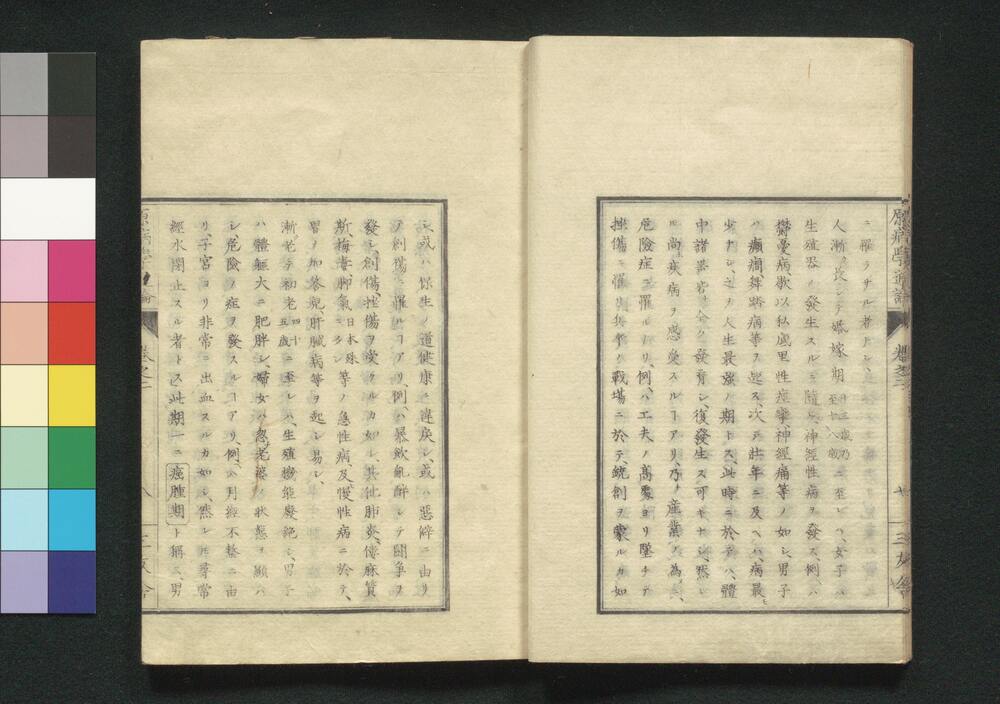 ニ罹ラサル者ナシ、
人漸ク長シテ婚嫁ノ期 十三歳乃至十八歳 ニ至レハ、女子ハ
生殖器ノ發生スルニ隨ヒ、神經性病ヲ發ス、例ハ
鬱憂病、歇以私的里性痙攣、神經痛等ノ如シ、男子
ハ癲癇舞踏病等ヲ起ス、次テ壯年ニ及ヘハ、病最モ
少ナシ、之ヲ人生最強ノ期トス、此時ニ於テハ、體
中諸器皆全ク發育シ、復發生ス可キナシ、然レ
𪜈高度ノ疾病ヲ感受スルヿアリ、乃チ産業ノ為ニ、
危險症ニ罹ルナリ、例ハ工夫ノ高處ヨリ墜チテ
挫傷ニ罹リ兵卒ノ戰場ニ於テ、銃創ヲ蒙ルカ如
シ、或ハ保生ノ道健康ニ違戻シ、或ハ惡癖ニ由リ
テ創傷ニ罹ルヿアリ、例ハ暴飲亂醉シテ鬪爭ヲ
發シ、創傷、挫傷ヲ受クルカ如シ、其他肺炎、僂麻質
斯、梅毒、脚氣 日本ニ殊ニ多シ 等ノ急性病、及慢性病ニ於テ、
胃ノ加答兒、肝臓病等ヲ起シ易シ、
漸ク老テ初老 四十五歳 ニ至レハ、生殖機能廢絶シ、男子
ハ體軀大ニ肥胖シ、婦女ハ忽チ老婆ノ状態ヲ顯ハ
シ、危險ノ症ヲ發スルヿアリ、例ハ月經不整ニ由
リ、子宮ヨリ非常ニ出血スルカ如シ、然レ𪜈尋常
經水閉止スル者トス、此期一ニ癌腫期ト稱ス、男
原病學通論
卷之二
三友舎